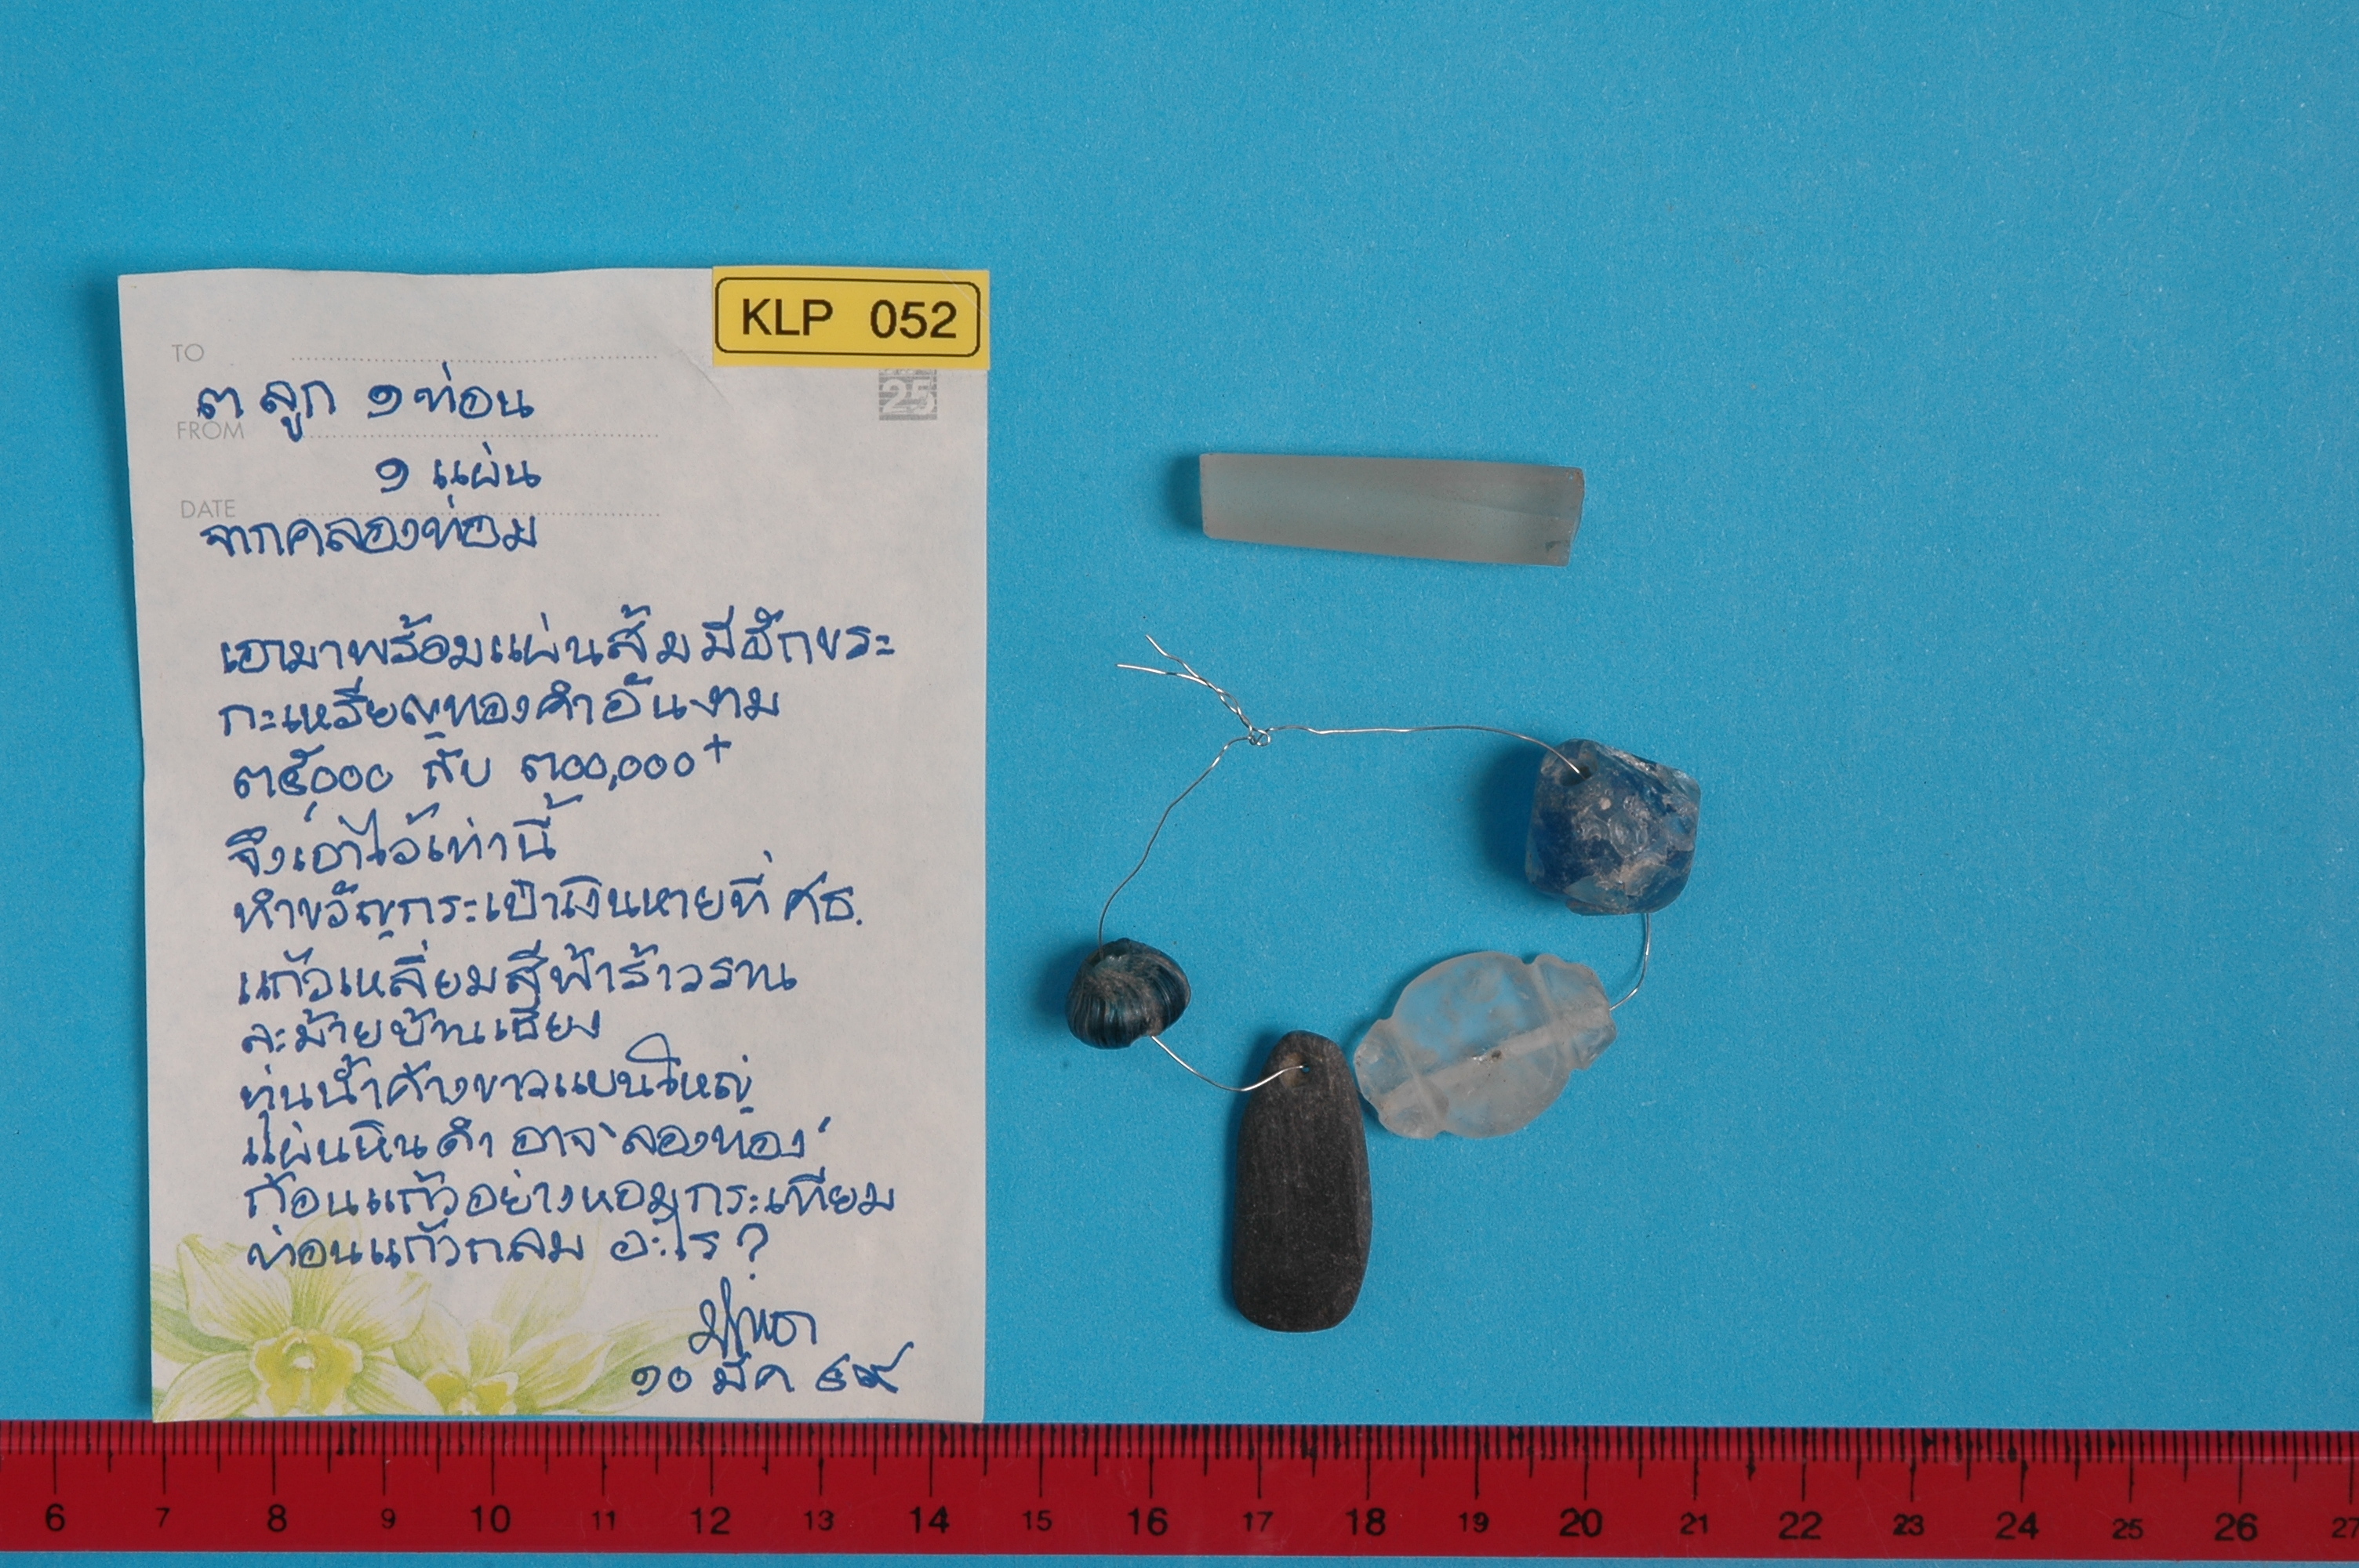 KLP 052
TO
25
๓ ลูก ๑ ท่อน
FROM
๑ แผ่น
DATE
จากคลองท่อม
เอามาพร้อมแผ่นส้มมีอักขระ
กะเหรียญทองคำอันงาม
๓๕,๐๐๐ กับ ๓๐๐,๐๐๐+
จึงเอาไว้เท่านี้
ทำขวัญกระเป๋าเงินหายที่ ศธ.
แก้วเหลี่ยมสีฟ้าร้าวราน
ละม้ายบ้านเชียง
ทุ่นน้ำค้างขาวแบนใหญ่
แผ่นหินดำ อาจ 'ลองทอง'
ก้อนแก้วอย่างหอมกระเทียม
ท่อนแก้วกลม อะไร?
๑๐ มีค ๔๙
6 7 8 9 10 11 12 13 14 15 16 17 18 19 20 21 22 23 24 25 26 27